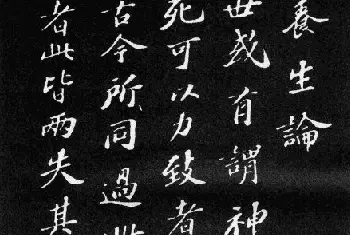 養生論
世或有謂神
死可以力致者
古今所同過此
者此皆兩失其